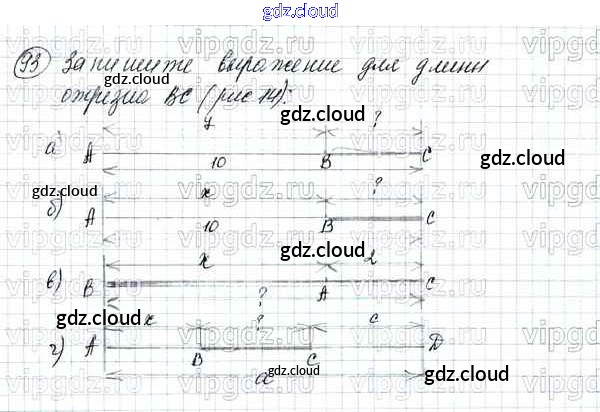 gdz.cloud
93 Запишите выражение для длины
gdz.cloud
отрезка ВС (рис 14):
gdz.cloud
7 ?
а) А 10 В С
gdz.cloud
gdz.cloud
x ?
б) А 10 В С
gdz.cloud
x 2
в) В А С
?
gdz.cloud
x ? c
gdz.cloud
г) А В С D
gdz.cloud
a
gdz.cloud
vipgdz.ru